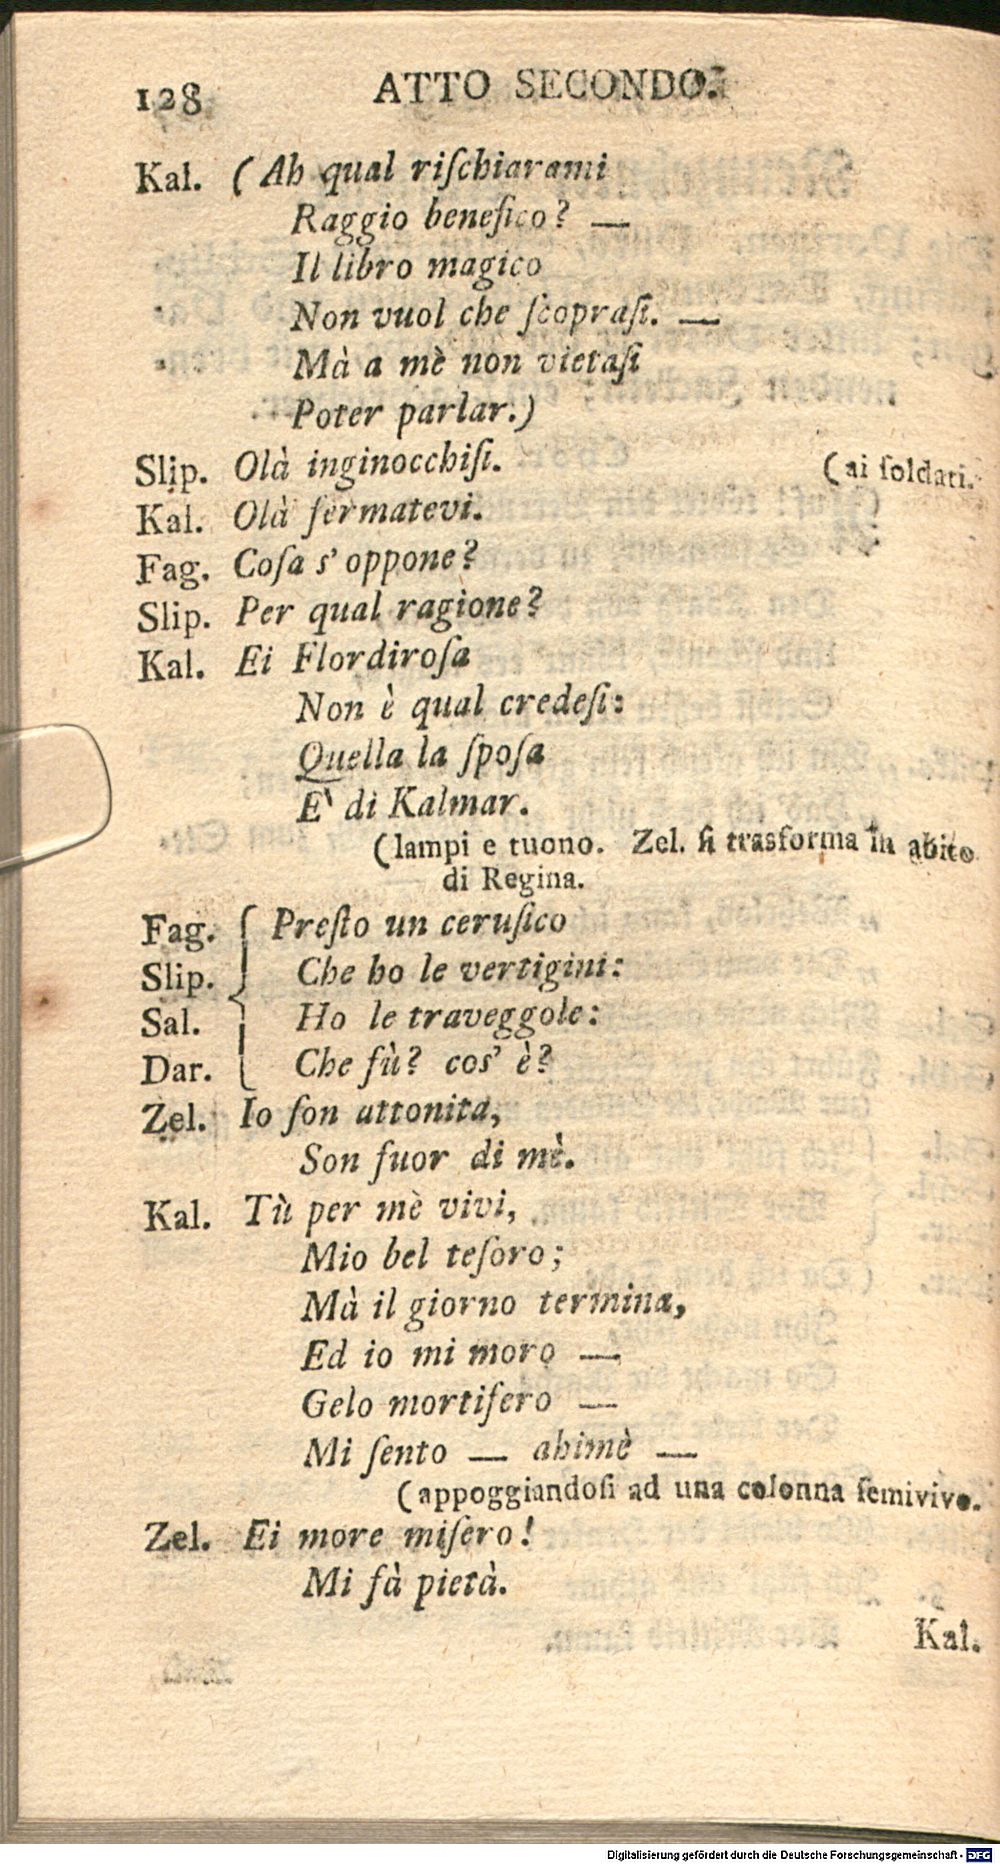 128 ATTO SECONDO.
Kal. (Ah qual riſchiarami
Raggio benefico? —
Il libro magico
Non vuol che ſcopraſi. —
Mà a mè non vietaſi
Poter parlar.)
Slip. Olà inginocchiſi. (ai ſoldati.
Kal. Olà fermatevi.
Fag. Coſa s' oppone?
Slip. Per qual ragione?
Kal. Ei Flordiroſa
Non è qual credeſi:
Quella la ſpoſa
E' di Kalmar.
(lampi e tuono. Zel. ſi trasforma in abito
di Regina.
Fag. Preſto un ceruſico
Slip. Che ho le vertigini:
Sal. Ho le traveggole:
Dar. Che fù? cos' è?
Zel. Io ſon attonita,
Son fuor di mè.
Kal. Tù per mè vivi,
Mio bel teſoro;
Mà il giorno termina,
Ed io mi moro —
Gelo mortifero —
Mi ſento — ahimè —
(appoggiandoſi ad una colonna ſemivivo.
Zel. Ei more miſero!
Mi fà pietà.
Kal.
Digitalisierung gefördert durch die Deutsche Forschungsgemeinschaft - DFG